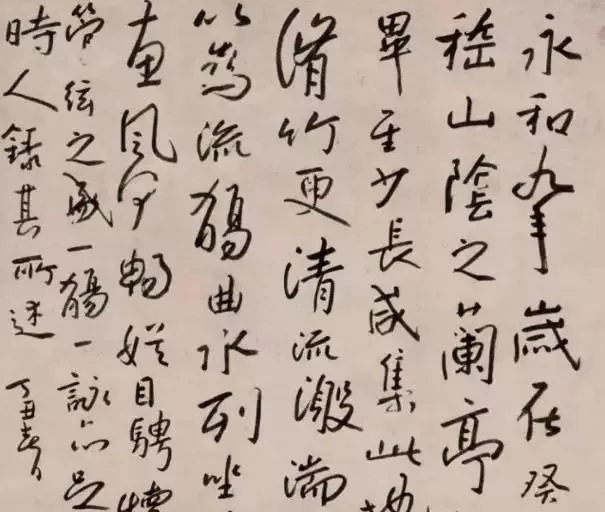 永和九年歲在癸
稽山陰之蘭亭
畢至少長咸集此地
脩竹更清流激湍
以為流觴曲水列坐
惠風和暢娛目騁懷
管弦之盛一觴一詠亦足
時人錄其所述 丁丑春日